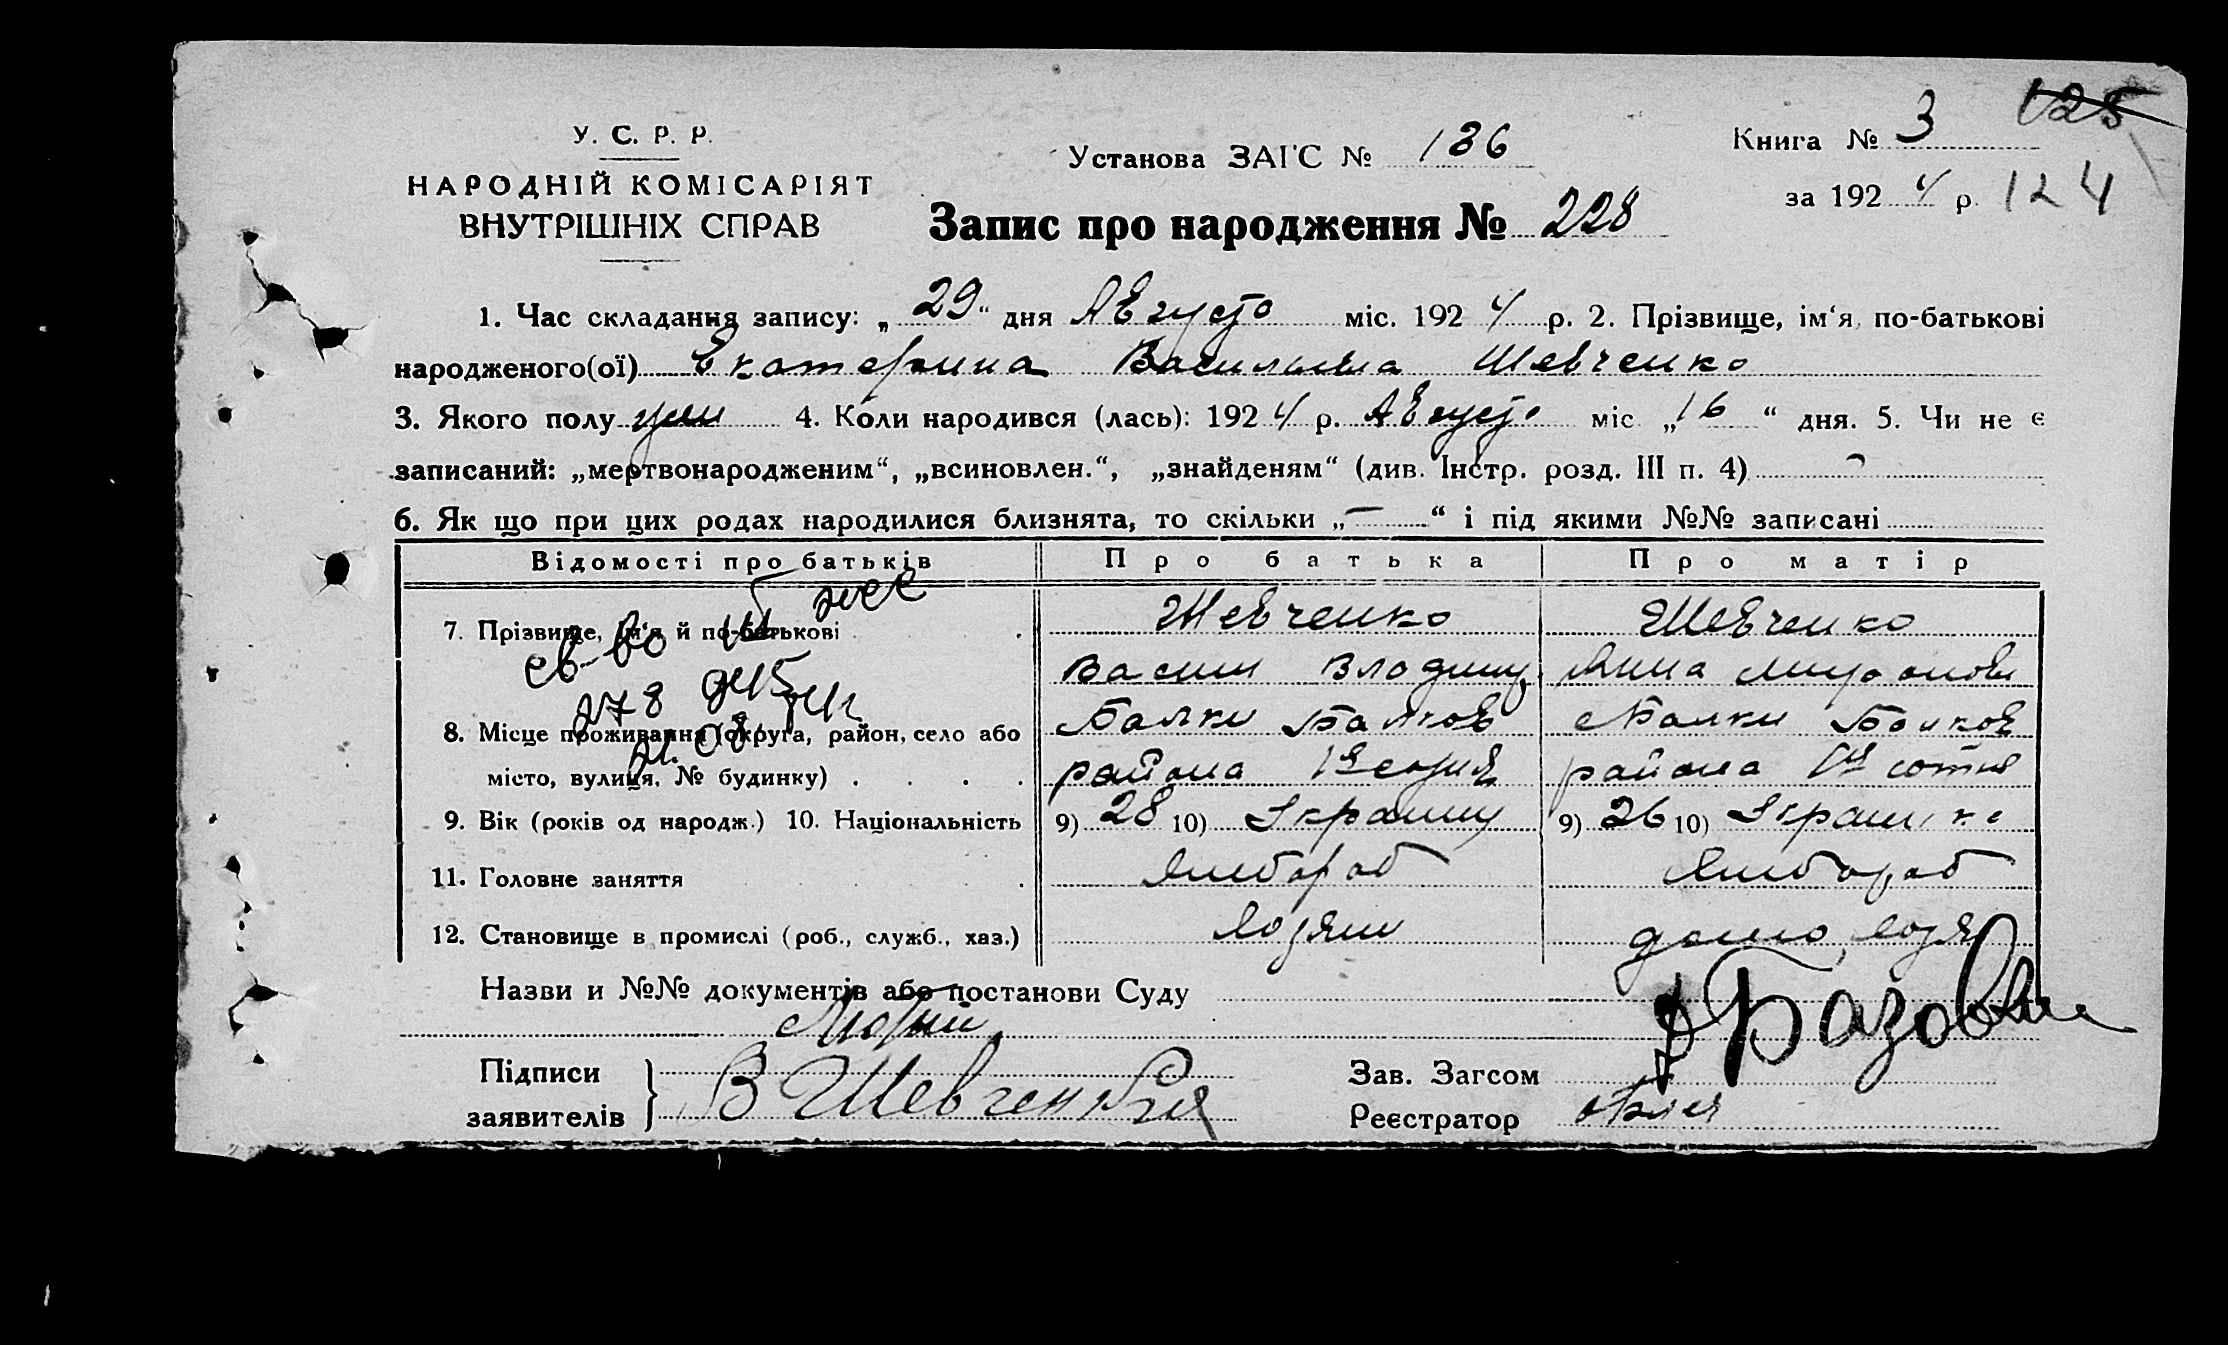 У. С. Р. Р.
НАРОДНІЙ КОМІСАРІЯТ
ВНУТРІШНІХ СПРАВ
Установа ЗАГС № 136
Книга № 3 125
за 1924 р. 124
Запис про народження № 228
1. Час складання запису: „29“ дня Августа міс. 1924 р. 2. Прізвище, ім‘я, по-батькові
народженого(ої) Екатерина Васильевна Шевченко
3. Якого полу жен 4. Коли народився (лась): 1924 р. Августа міс „16“ дня. 5. Чи не є
записаний: „мертвонародженим“, „всиновлен.“, „знайденям“ (див. Інстр. розд. III п. 4)
6. Як що при цих родах народилися близнята, то скільки „—“ і під якими №№ записані
Відомості про батьків Про батька Про матір
7. Прізвище, ім‘я й по-батькові Шевченко Шевченко
Васили Владим Анна Миронов
8. Місце проживання (округа, район, село або Балки Балков Балки Балков
місто, вулиця, № будинку) района 1й сотня района 1й сотня
9. Вік (років од народж.) 10. Національність 9) 28 10) Украинц 9) 26 10) Украинка
11. Головне заняття Хлебороб Хлебороб
12. Становище в промислі (роб., служб., хаз.) Хозяин домохозя
Назви и №№ документів або постанови Суду
Підписи
заявителів
В Шевченко
Зав. Загсом
Реєстратор